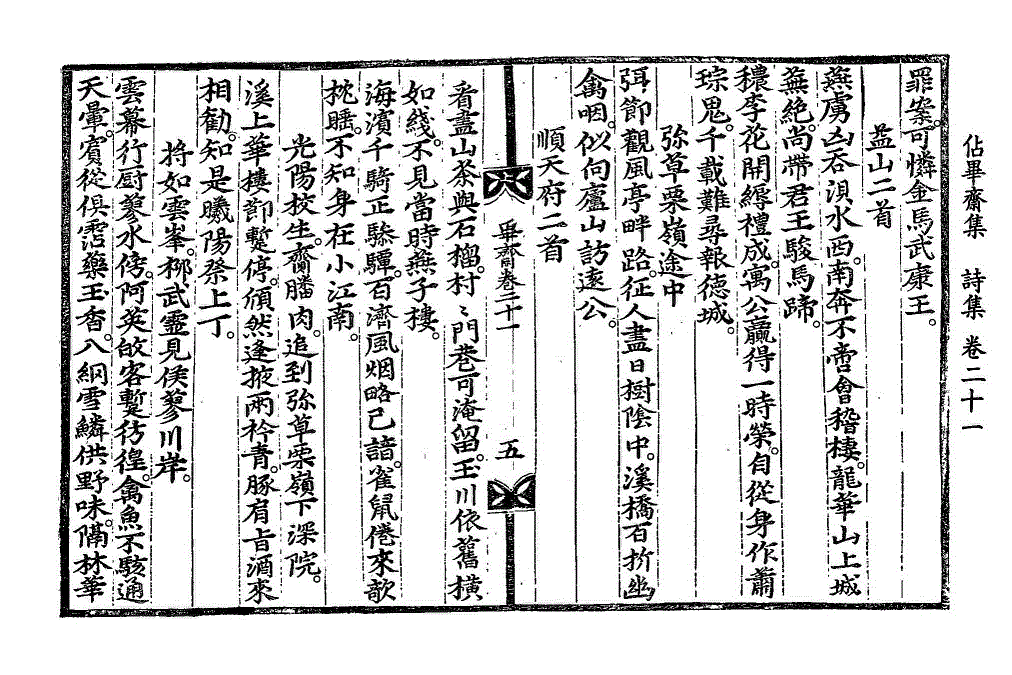 佔畢齋集 詩集 卷二十一
罪案。可憐金馬武康王。
益山二首
無虜凶吞浿水西。南奔不啻會稽棲。龍華山上城
蕪絶。尚帶君王駿馬蹄。
穠李花開縟禮成。寓公贏得一時榮。自從身作蕭
琮鬼。千載難尋報德城。
弥草栗嶺途中
弭節觀風亭畔路。征人盡日樹陰中。溪橋百折幽
禽咽。似向廬山訪遠公。
順天府二首
畢齋卷二十一
五
看盡山茶與石榴。村〻門巷可淹留。玉川依舊橫
如綫。不見當時燕子樓。
海濱千騎正驂驔。百濟風烟略已諳。雀鼠倦來歌
枕睡。不知身在小江南。
光陽校生。齎膰肉。追到弥草栗嶺下深院。
溪上華樓節蹔停。頎然逢掖兩衿青。豚肩旨酒來
相勸。知是曦陽祭上丁。
將如雲峯。柳武靈見俟蓼川岸。
雲幕行厨蓼水傍。阿英故客蹔彷徨。禽魚不駭通
天暈。賓從俱霑藥玉香。八綱雪鱗供野味。隔林華